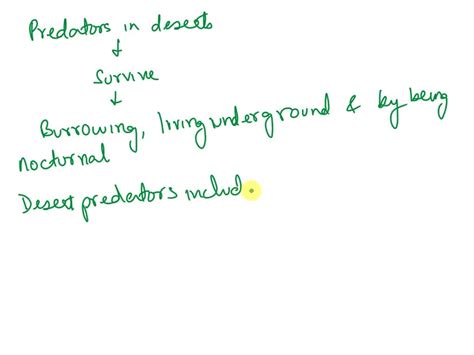 Predators in deserts
↓
Survive
↓
Burrowing, living underground & by being
nocturnal
Desert predators includ